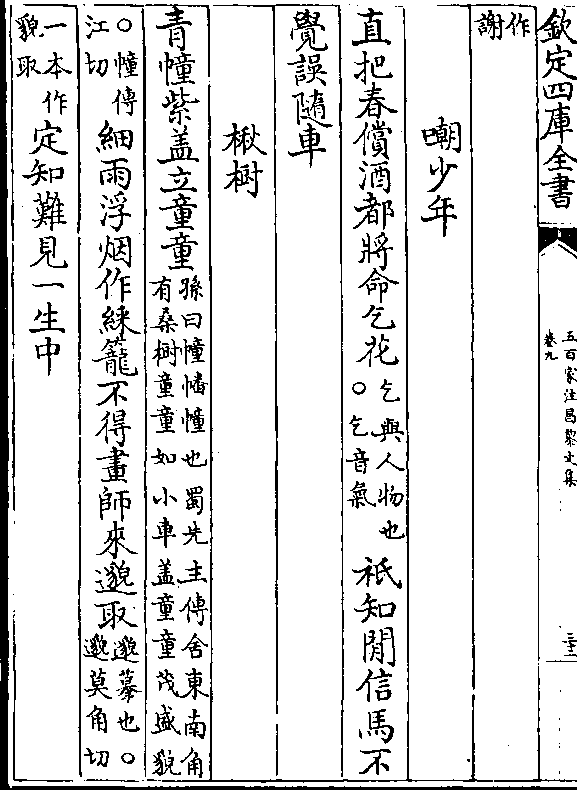 欽定四庫全書
五百家注昌黎文集
卷九
作
謝
嘲少年
直把春償酒都將命乞花
乞與人物也
○乞音氣
祇知閒信馬不
覺誤隨車
楸樹
青幢紫盖立童童
孫曰幢幡幢也蜀先主傳舍東南角
有桑樹童童如小車盖童童茂盛貌
○幢傳
江切
細雨浮烟作綵籠不得畫師來邈取
邈摹也○
邈莫角切
一本作
貌取
定知難見一生中